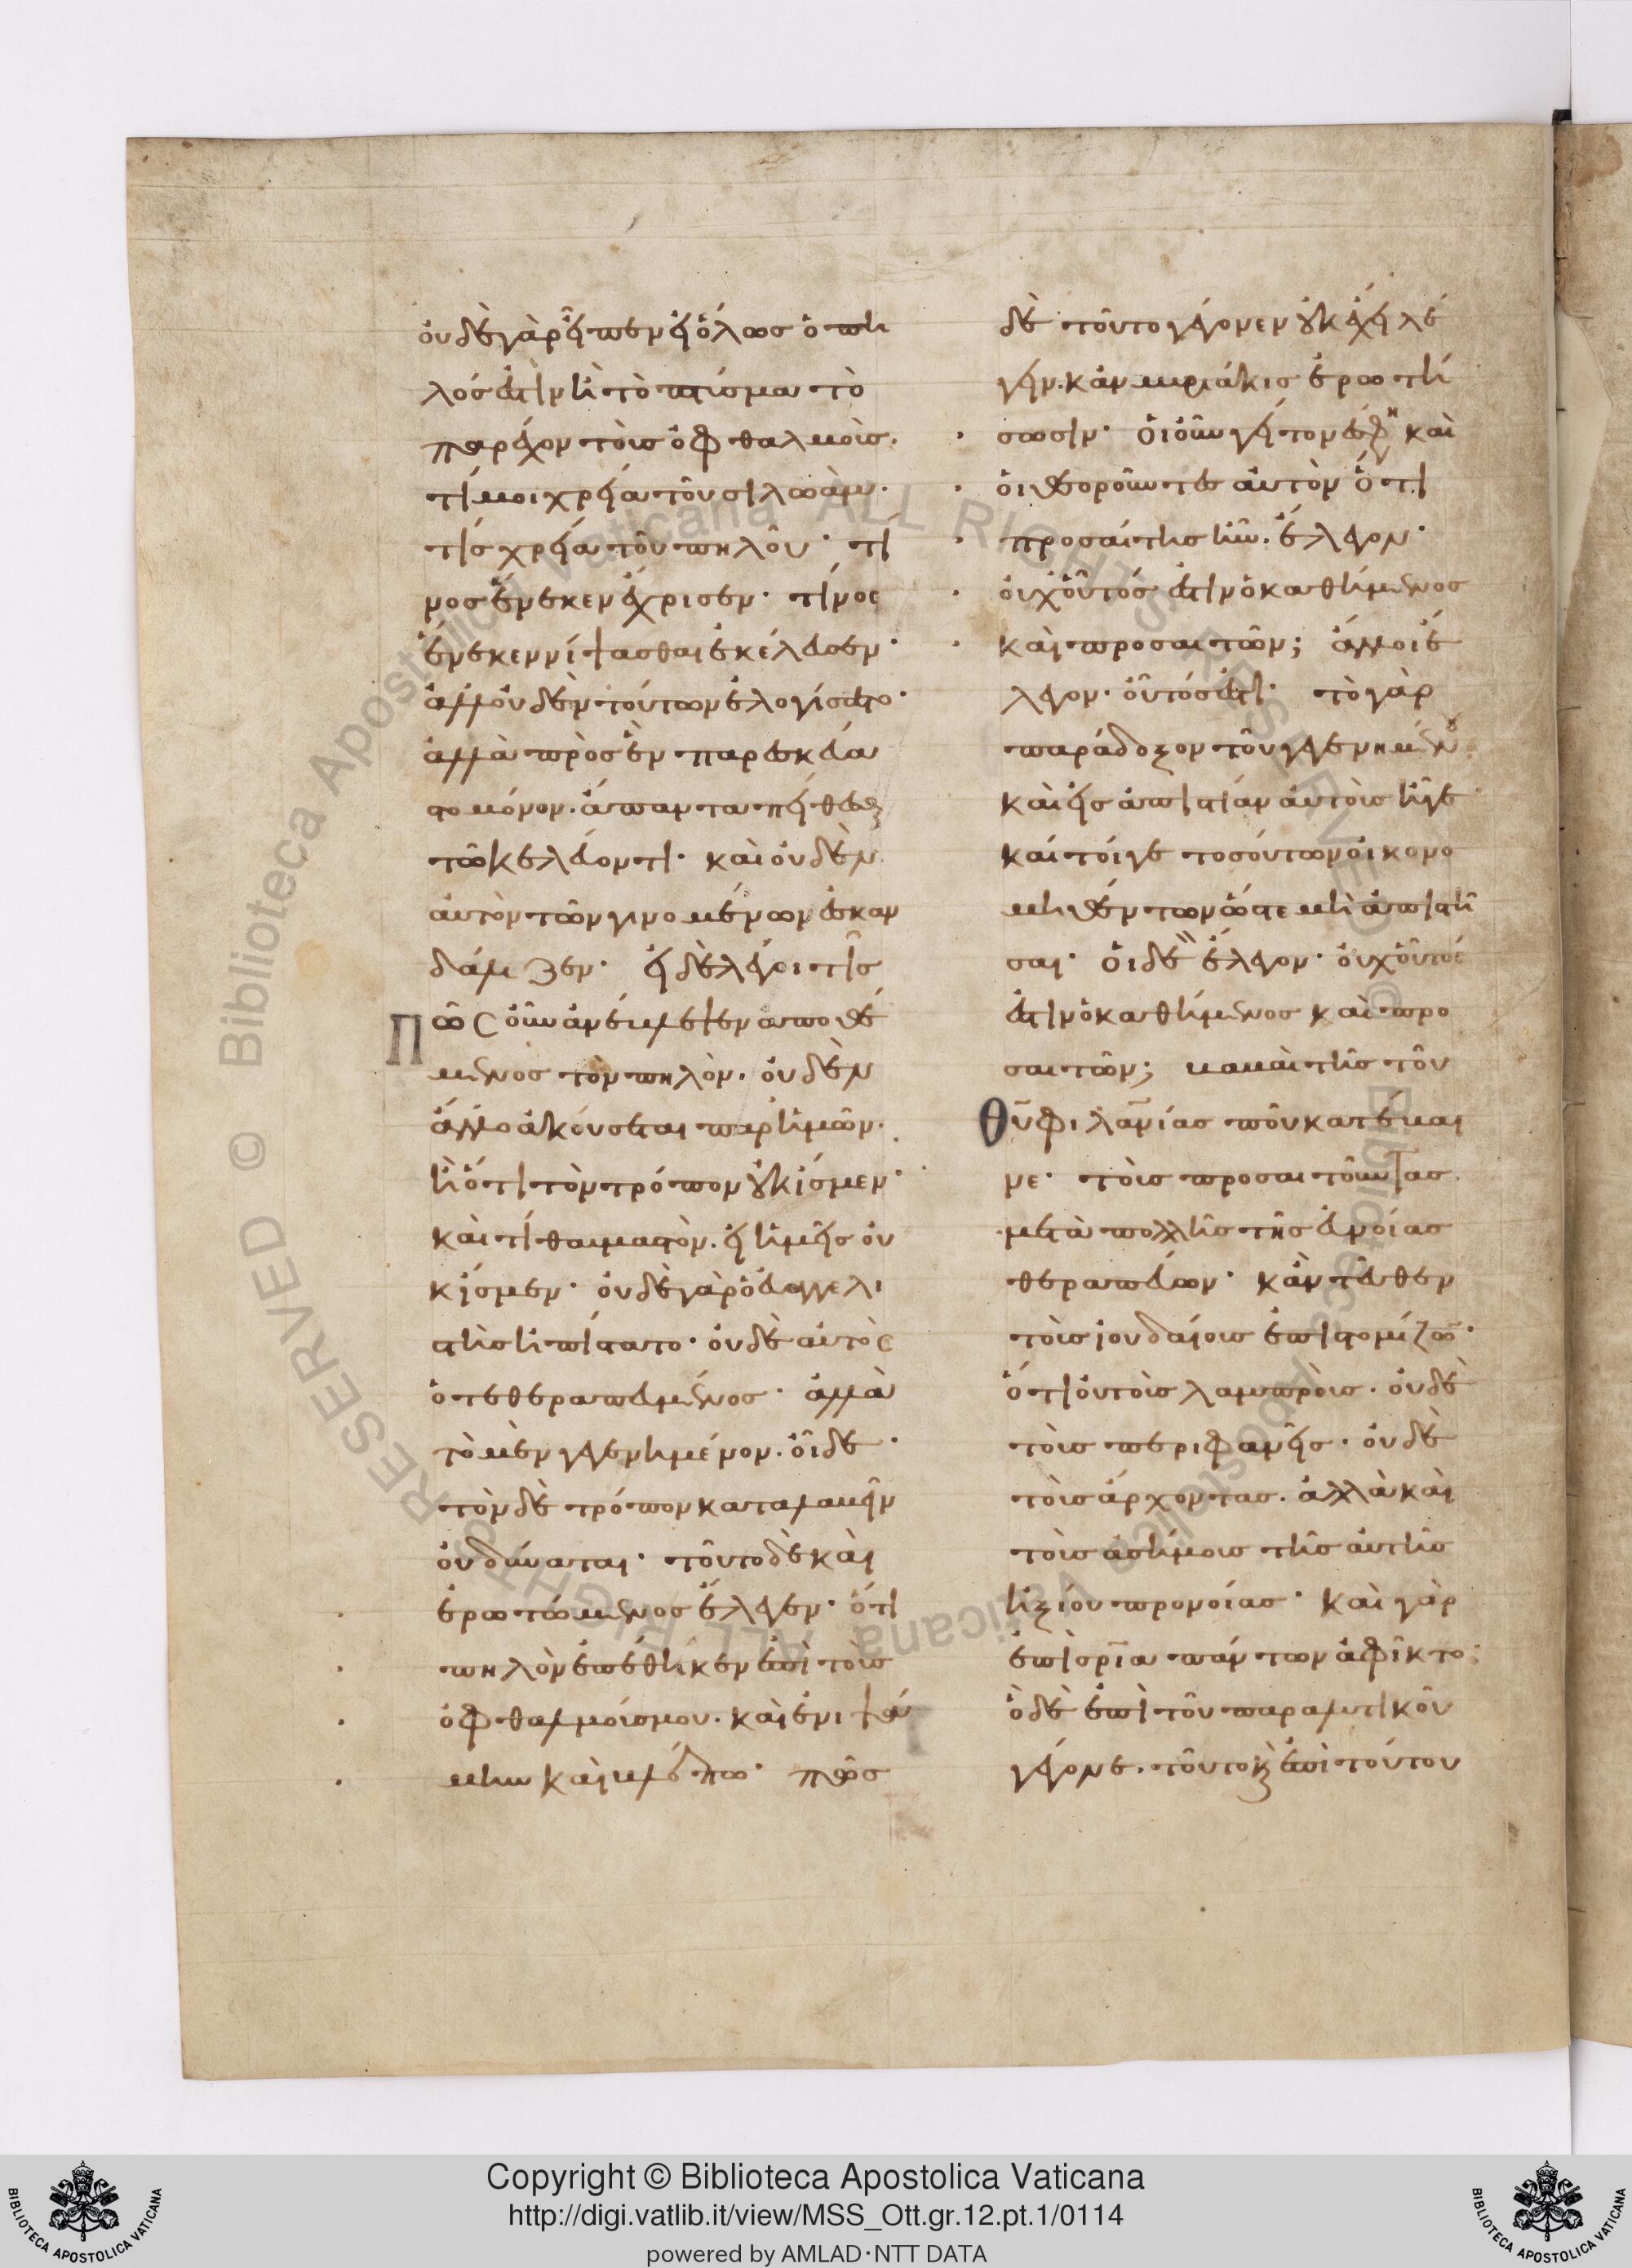 οὐδὲ γὰρ εἶπεν εἰ ὅλως ὁ πη
λός ἐστιν ἢ τὸ πτύσμα τὸ
παρέχον τοῖς ὀφθαλμοῖς.
τί μοι χρεία τοῦ σιλωάμ.
τίς χρεία τοῦ πηλοῦ· τί
νος ἕνεκεν ἔχρισεν· τίνος
ἕνεκεν νίψασθαι ἐκέλευσεν·
ἀλλ' οὐδὲν τούτων ἐλογίσατο·
ἀλλὰ πρὸς ἓν παρεσκευά
στο μόνον. ἅπαντα πείθεσθαι
τῶ κελεύοντι· καὶ οὐδὲν
αὐτὸν τῶν γινομένων ἐσκαν
δάλιζεν· εἰ δὲ λέγοι τίς
πῶς οὖν ἀνέβλεψεν ἀποθέ
μενος τὸν πηλόν. οὐδὲν
ἄλλο ἀκούσεται παρ' ἡμῶν.
ἢ ὅτι τὸν τρόπον οὐκ ἴσμεν·
καὶ τί θαυμαστόν. εἰ ἡμεῖς οὐ
κ ἴσμεν· οὐδὲ γὰρ ὁ εὐαγγελι
στὴς ἠπίστατο· οὐδὲ αὐτὸς
ὁ τεθεραπευμένος· ἀλλὰ
τὸ μὲν γεγενημένον. οἶδε·
τὸν δὲ τρόπον καταλαβεῖν
οὐ δύναται· τοῦτο δὲ καὶ
ἐρωτώμενος ἔλεγεν· ὅτι
πηλὸν ἐπέθηκεν ἐπὶ τοὺς
ὀφθαλμούς μου. καὶ ἐνιψά
μην καὶ βλέπω· πῶς
δὲ τοῦτο γέγονεν οὐκ ἔχει λέ
γειν. κἂν μυριάκις ἐρωτή
σωσιν· Οἱ οὖν γείτονές φησιν καὶ
οἱ θεοροῦντες αὐτὸν ὅτι
προσαίτης ἦν. ἔλεγον·
οὐχ οὗτός ἐστιν ὁ καθήμενος
καὶ προσαιτῶν; ἄλλοι ἔ
λεγον· οὗτός ἐστι· τὸ γὰρ
παράδοξον τοῦ γεγενημένου
καὶ εἰς ἀπιστίαν αὐτοὺς ἦγε
καί τοί γε τοσούτων οἰκονο
μηθέντων ὥστε μὴ ἀπιστῆ
σαι· Οἱ δὲ ἔλεγον· οὐχ οὗτος
ἐστιν ὁ καθήμενος καὶ προ
σαιτῶν; βαβαὶ τῆς τοῦ
θυ φιλανίας ποῦ κατέβαι
νε· τοὺς προσαιτοῦντας
μετὰ πολλῆς τῆς εὐνοίας
θεραπεύων· κἀντεῦθεν
τοὺς ἰουδαίους ἐπιστομίζων·
ὅτι οὐ τοὺς λαμπροὺς. οὐδὲ
τοὺς περιφανεῖς. οὐδὲ
τοὺς ἄρχοντας. ἀλλὰ καὶ
τοὺς ἀσήμους τῆς αὐτῆς
ἠξίου προνοίας· καὶ γὰρ
ἐπὶ σρία πάντων ἀφῖκτο·
ὃ δὲ ἐπὶ τοῦ παραλυτικοῦ
γέγονε. τοῦτο καὶ ἐπὶ τούτου
Copyright © Biblioteca Apostolica Vaticana
http://digi.vatlib.it/view/MSS_Ott.gr.12.pt.1/0114
powered by AMLAD·NTT DATA